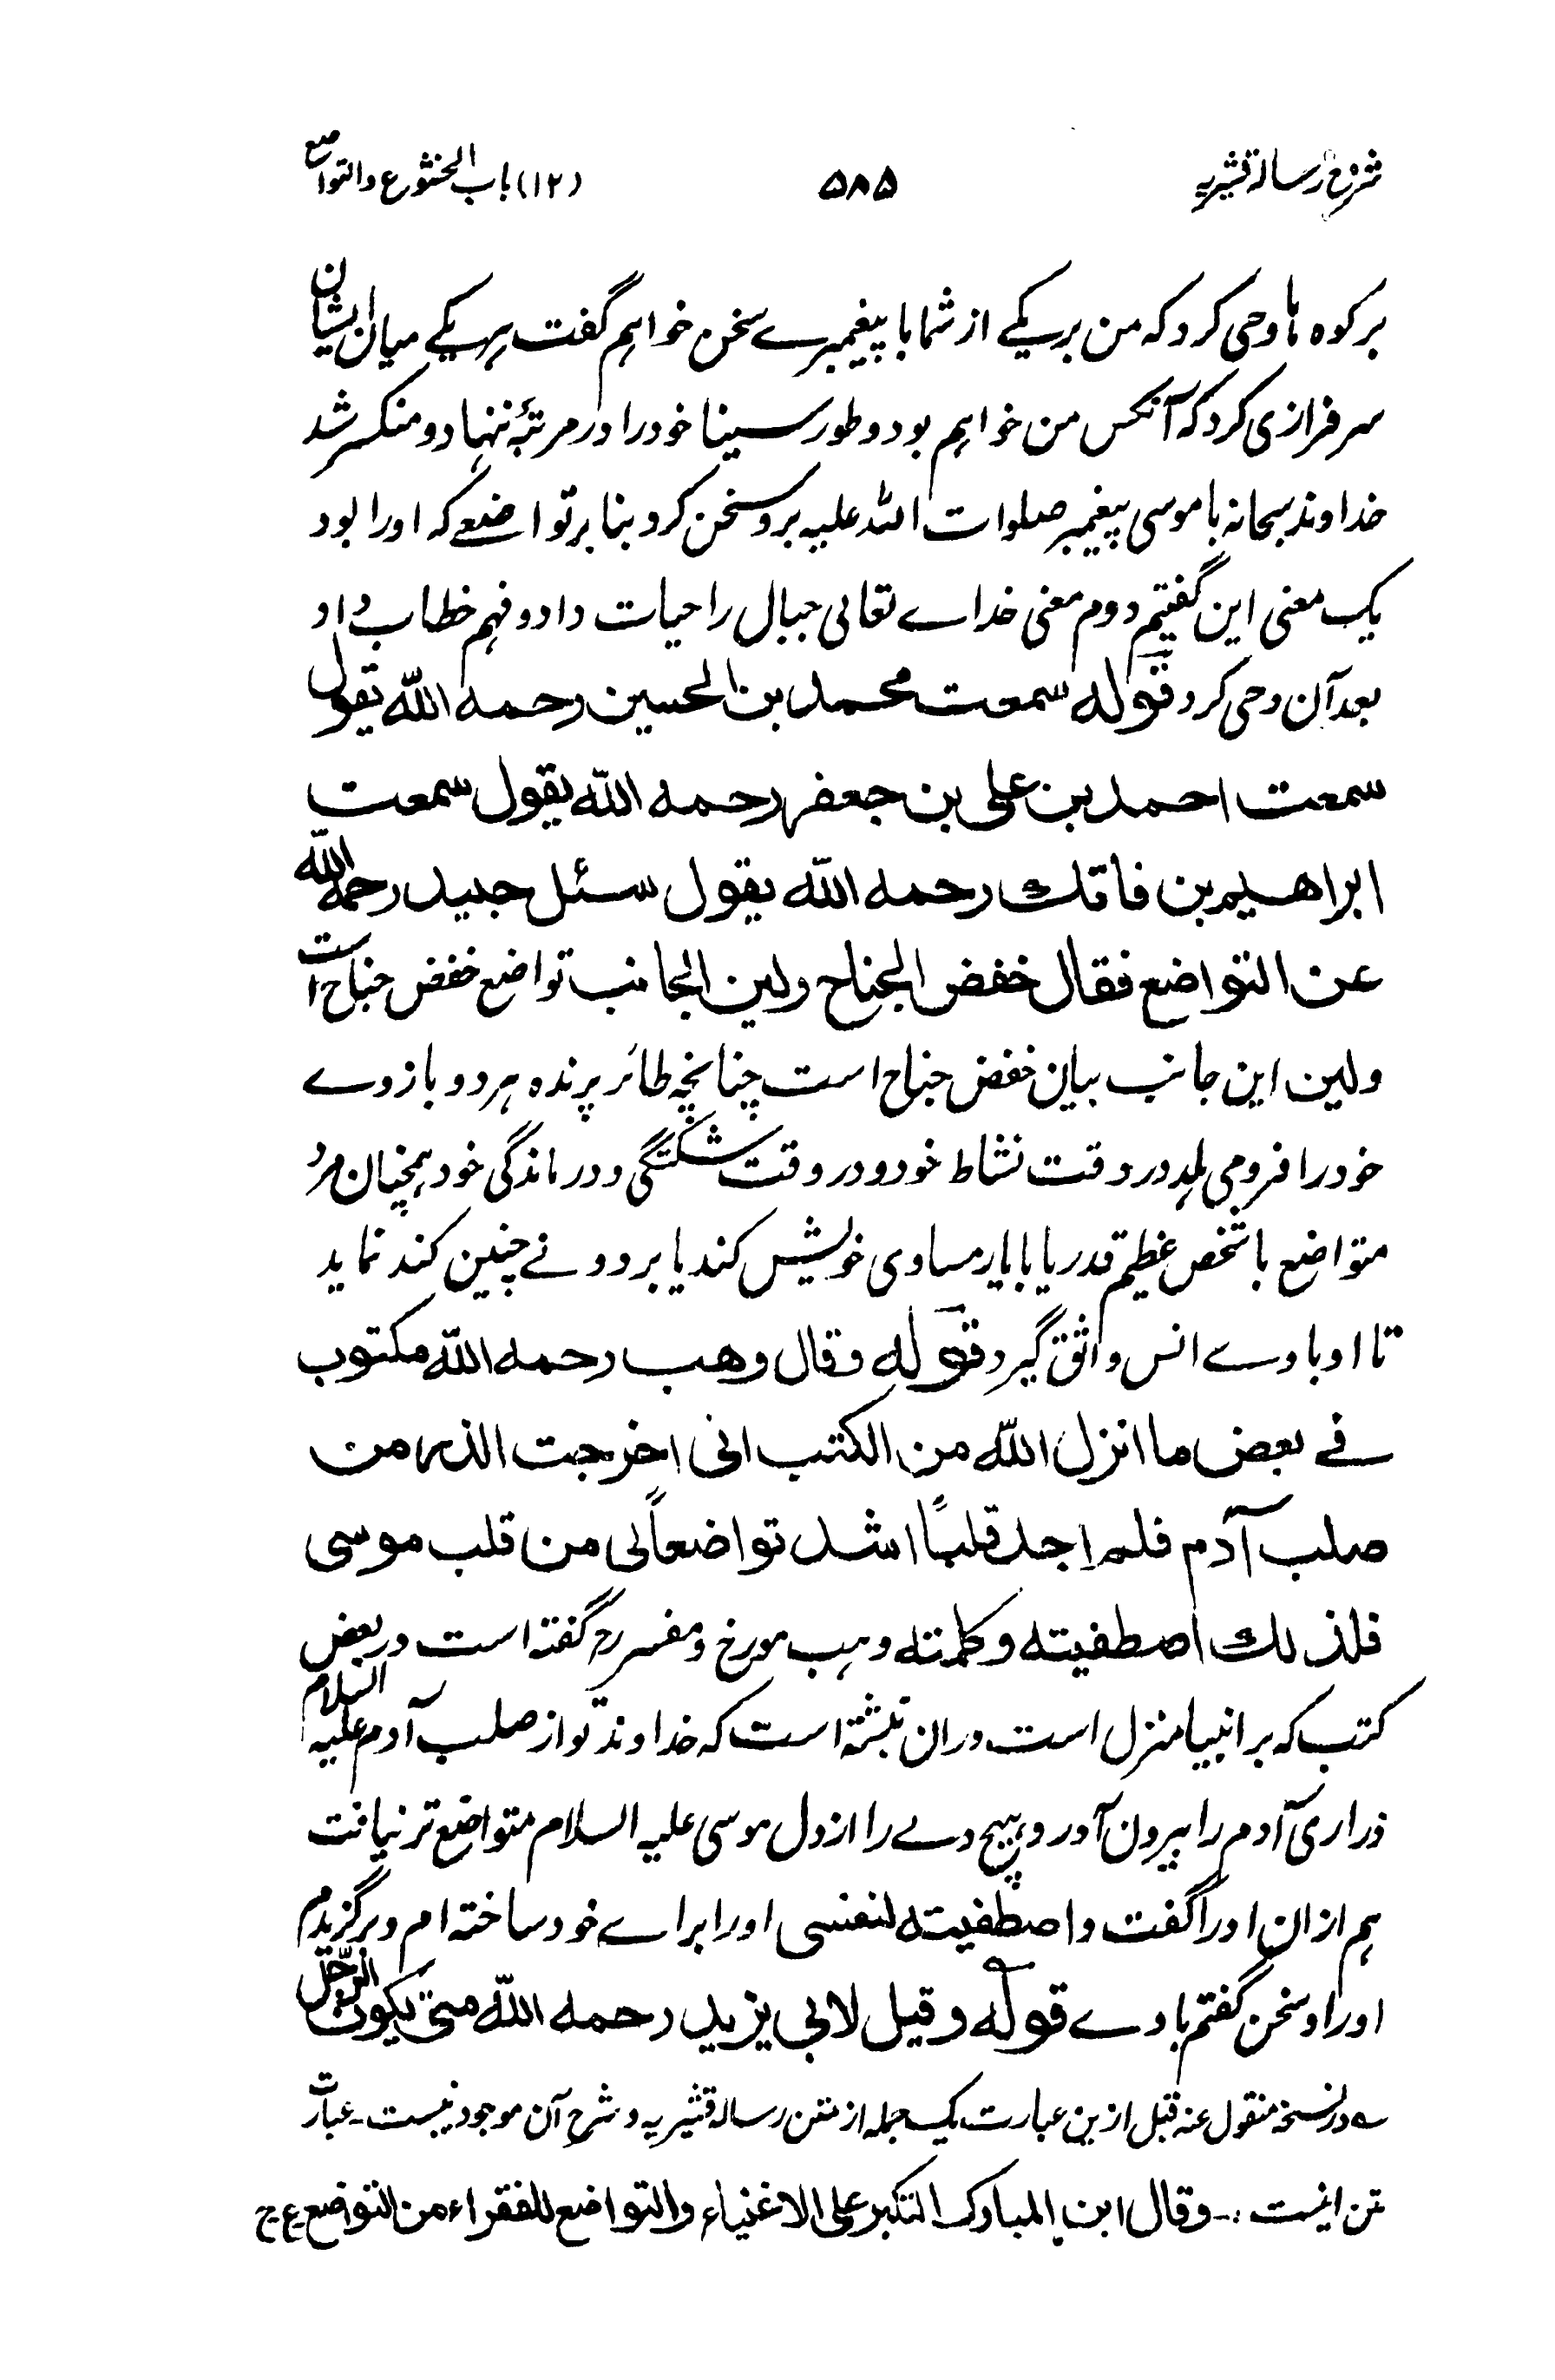 شرح رسالہ قشیریہ ۵۸۵ (۱۲) باب الخشوع والتواضع
بر کوہ ہا وحی کرد کہ من بر یکے از شما با پیغمبرے سخن خواہم گفت ہر یکے میان ایشان
سرفرازی کرد کہ آنکس من خواہم بود و طور سینا خود را در مرتبۂ ننہاد و منکسر شد
خداوند سبحانہ با موسی پیغمبر صلوات اللہ علیہ برو سخن کرد بنا بر تواضعے کہ او را بود
یک معنی این گفتیم دوم معنی خداے تعالی جبال را حیات داد و فہم خطاب داد
بعد آن وحی کرد قولہ سمعت محمد بن الحسین رحمہ اللہ یقول
سمعت احمد بن علی بن جعفر رحمہ اللہ یقول سمعت
ابراھیم بن فاتک رحمہ اللہ یقول سئل جنید رحمہ اللہ
عن التواضع فقال خفض الجناح ولین الجانب تواضع خفض جناح است
ولین این جانب بیان خفض جناح است چنانچہ طائر پرندہ ہر دو بازوے
خود را فرو می ہلد در وقت نشاط خود و در وقت شکستگی و درماندگی خود ہمچنان مرد
متواضع با شخص عظیم قدر یا با یار مساوی خویش کند یا بر دونے چنین کند نماید
تا او با وے انس واثق گیرد قولہ وقال وھب رحمہ اللہ مکتوب
فے بعض ما انزل اللہ من الکتب انی اخرجت الذر من
صلب آدم فلم اجد قلبًا اشد تواضعاً لی من قلب موسی
فلذلک اصطفیتہ وکلمتہ وہب مورخ و مفسر رح گفتہ است در بعض
کتب کہ بر انبیا منزل است دران نبشتہ است کہ خداوند تو از صلب آدم علیہ السلام
ذراری آدم را بیرون آورد و ہیچ دے را از دل موسی علیہ السلام متواضع تر نیافت
ہم ازان او را گفت واصطفیتہ لنفسی او را براے خود ساختہ ام و برگزیدم
او را و سخن گفتم با وے قولہ وقیل لابی یزید رحمہ اللہ متی یکون الرجل
؎ در نسخہ منقول عنہ قبل ازین عبارت یک جملہ از متن رسالہ قشیریہ و شرح آن موجود نیست۔ عبارت
متن اینست :۔ وقال ابن المبارک التکبر علی الاغنیاء والتواضع للفقراء من التواضع ع ح